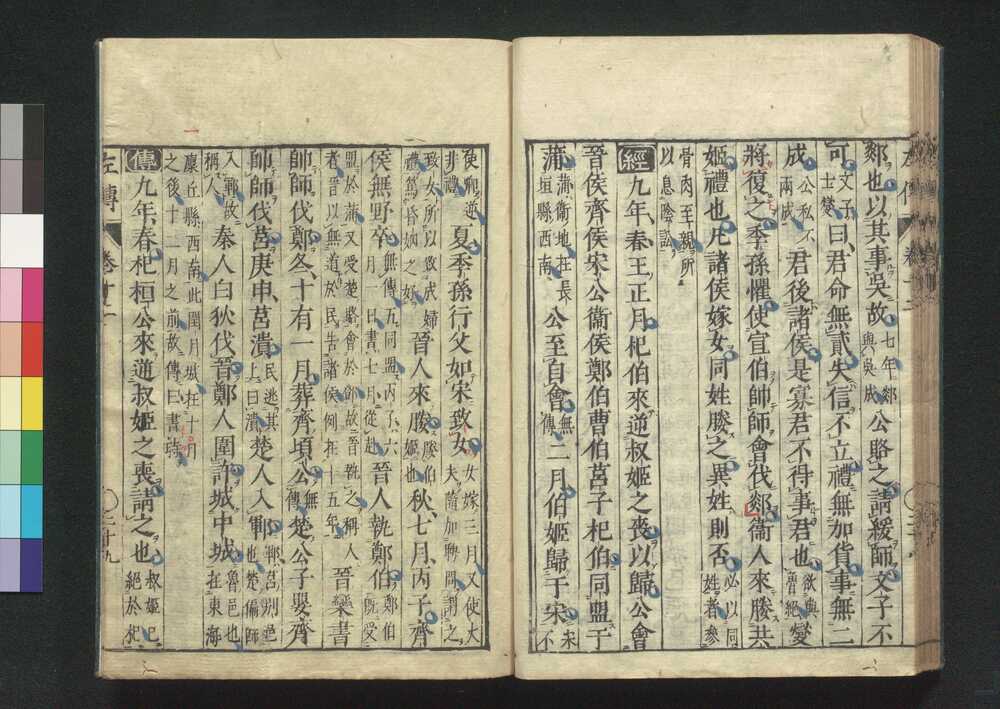 郯也以其事吳故七年郯與吳成公賂之請緩師文子不
可文子士燮曰君命無貳失信不立禮無加貨事無二
成公私不兩成君後諸侯是寡君不得事君也欲與魯絕燮
將復之季孫懼使宣伯帥師會伐郯衞人來媵共
姬禮也凡諸侯嫁女同姓媵之異姓則否必以同姓者參
骨肉至親所以息陰訟
經九年春王正月杞伯來逆叔姬之喪以歸公會
晉侯齊侯宋公衞侯鄭伯曹伯莒子杞伯同盟于
蒲蒲衞地在長垣縣西南公至自會無傳二月伯姬歸于宋宋不
使卿逆非禮夏季孫行父如宋致女女嫁三月又使大夫隨加聘問謂之
致女所以致成婦禮篤昏姻之好晉人來媵媵伯姬也秋七月丙子齊
侯無野卒無傳五同盟丙子六月一日書七月從赴晉人執鄭伯鄭伯既受
盟於蒲又受楚賂會於鄧故晉執之稱人者晉以無道於民告諸侯例在十五年晉欒書
帥師伐鄭冬十有一月葬齊頃公無傳楚公子嬰齊
帥師伐莒庚申莒潰民逃其上曰潰楚人入鄆鄆莒別邑也楚偏師
入鄆故稱人秦人白狄伐晉鄭人圍許城中城魯邑也在東海
廩丘縣西南此閏月城在十一月之後十二月之前故傳曰書時
傳九年春杞桓公來逆叔姬之喪請之也叔姬已絕於杞
左傳